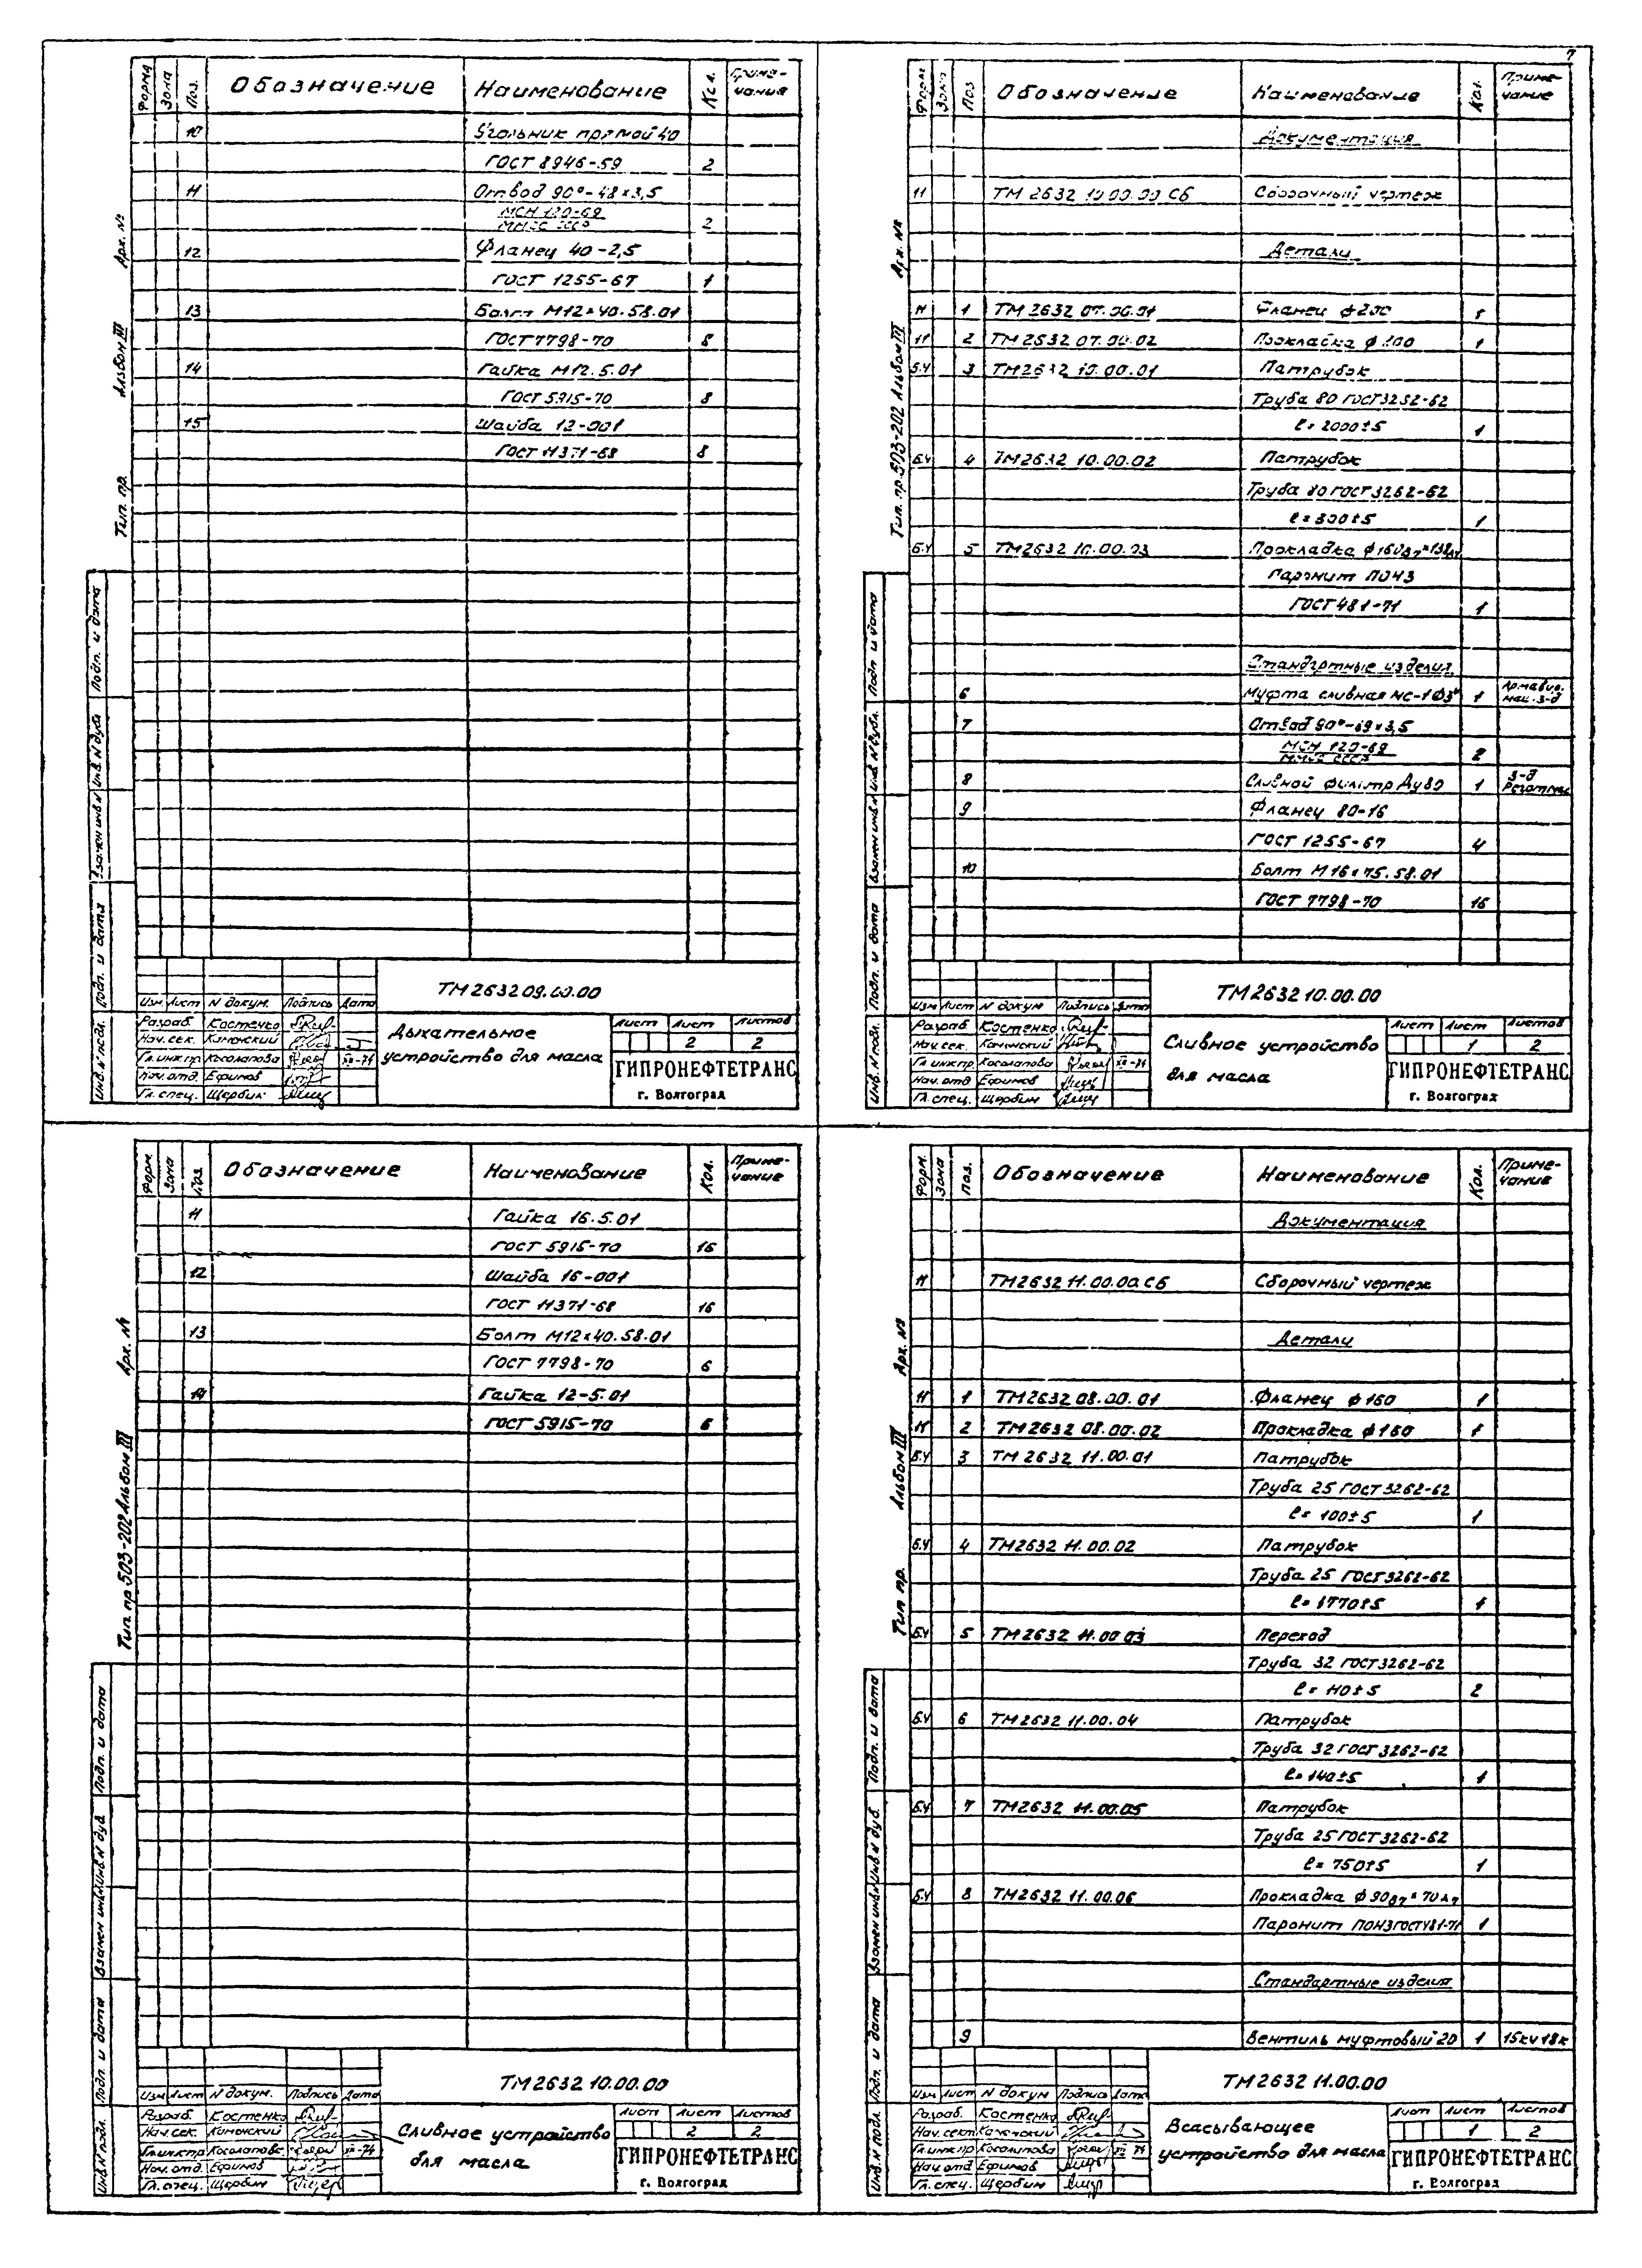 7
Форма Зона Поз. Обозначение Наименование Кол. Приме-
чание
10 Угольник прямой 40
ГОСТ 8946-59 2
11 Отвод 90°-48×3,5
МСН 120-69
ММСС СССР 2
12 Фланец 40-2,5
ГОСТ 1255-67 1
13 Болт М12×40.58.01
ГОСТ 7798-70 8
14 Гайка М12.5.01
ГОСТ 5915-70 8
15 Шайба 12-001
ГОСТ 11371-68 8
Арх. №
Альбом III
Тип. пр.
Подп. и дата
Инв. N дубл
Взамен инв. N
Подп. и дата
Инв. N подл.
ТМ 2632 09.00.00
Изм. Лист N докум. Подпись Дата
Разраб. Костенко
Нач. сек. Каменский
Гл. инж. пр. Косолапова XII-74
Нач. отд. Ефимов
Гл. спец. Щербин
Дыхательное
устройство для масла
Лист Лист Листов
2 2
ГИПРОНЕФТЕТРАНС
г. Волгоград
Форм Зона Поз Обозначение Наименование Кол. Приме-
чание
Документация
11 ТМ 2632 10.00.00 СБ Сборочный чертеж
Детали
11 1 ТМ 2632 07.00.01 Фланец ф200 1
11 2 ТМ 2632 07.00.02 Прокладка ф 200 1
Б.Ч 3 ТМ2632 10.00.01 Патрубок
Труба 80 ГОСТ3262-62
ℓ= 2000±5 1
Б.Ч 4 ТМ2632 10.00.02 Патрубок
Труба 80 ГОСТ 3262-62
ℓ=300±5 1
Б.Ч 5 ТМ2632 10.00.03 Прокладка ф160
Паронит ПОН3
ГОСТ 481-71 1
Стандартные изделия
6 Муфта сливная МС-1 ф3" 1 Армавир.
маш. з-д
7 Отвод 90°-89×3,5
МСН 120-69
ММСС СССР 2
8 Сливной фильтр Ду80 1 з-д
9 Фланец 80-16
ГОСТ 1255-67 4
10 Болт М16×75.58.01
ГОСТ 7798-70 16
Арх. №
Тип. пр. 503-202 Альбом III
Подп и дата
Инв N дубл.
Взамен инв. N
Подп. и дата
Инв. N подл.
ТМ2632 10.00.00
Изм Лист N докум Подпись Дата
Разраб Костенко
Нач. сек. Каменский
Гл инж пр. Косолапова XII-74
Нач. отд Ефимов
Гл. спец. Щербин
Сливное устройство
для масла
Лист Лист Листов
1 2
ГИПРОНЕФТЕТРАНС
г. Волгоград
Форм. Зона Поз. Обозначение Наименование Кол. Приме-
чание
11 Гайка 16.5.01
ГОСТ 5915-70 16
12 Шайба 16-001
ГОСТ 11371-68 16
13 Болт М12×40.58.01
ГОСТ 7798-70 6
14 Гайка 12-5.01
ГОСТ 5915-70 6
Арх. №
Тип. пр 503-202 Альбом III
Подп. и дата
Инв N дуб.
Взамен инв. N
Подп. и дата
Инв N подл.
ТМ2632 10.00.00
Изм Лист N докум. Подпись Дата
Разраб. Костенко
Нач. сек. Каменский
Гл инж пр Косолапова XII-74
Нач. отд. Ефимов
Гл. спец. Щербин
Сливное устройство
для масла
Лист Лист Листов
2 2
ГИПРОНЕФТЕТРАНС
г. Волгоград
Форм. Зона Поз. Обозначение Наименование Кол. Приме-
чание
Документация
11 ТМ2632 11.00.00 СБ Сборочный чертеж
Детали
11 1 ТМ2632 08.00.01 Фланец ф160 1
11 2 ТМ2632 08.00.02 Прокладка ф160 1
Б.Ч 3 ТМ 2632 11.00.01 Патрубок
Труба 25 ГОСТ 3262-62
ℓ= 100±5 1
Б.Ч 4 ТМ2632 11.00.02 Патрубок
Труба 25 ГОСТ3262-62
ℓ= 1770±5 1
Б.Ч 5 ТМ2632 11.00 03 Переход
Труба 32 ГОСТ3262-62
ℓ= 110±5 2
Б.Ч 6 ТМ2632 11.00.04 Патрубок
Труба 32 ГОСТ 3262-62
ℓ= 140±5 1
Б.Ч 7 ТМ2632 11.00.05 Патрубок
Труба 25 ГОСТ 3262-62
ℓ= 750±5 1
Б.Ч 8 ТМ2632 11.00.06 Прокладка ф90 В7 × 70 А7
Паронит ПОН3 ГОСТ481-71 1
Стандартные изделия
9 Вентиль муфтовый 20 1 15кч18к
Арх. №
Альбом III
Тип пр.
Подп. и дата
Инв N дуб.
Взамен инв. N
Подп. и дата
Инв. N подл.
ТМ2632 11.00.00
Изм Лист N докум Подпись Дата
Разраб. Костенко
Нач. сект. Каменский
Гл инж пр Косолапова XII 74
Нач отд Ефимов
Гл. спец. Щербин
Всасывающее
устройство для масла
Лист Лист Листов
1 2
ГИПРОНЕФТЕТРАНС
г. Волгоград